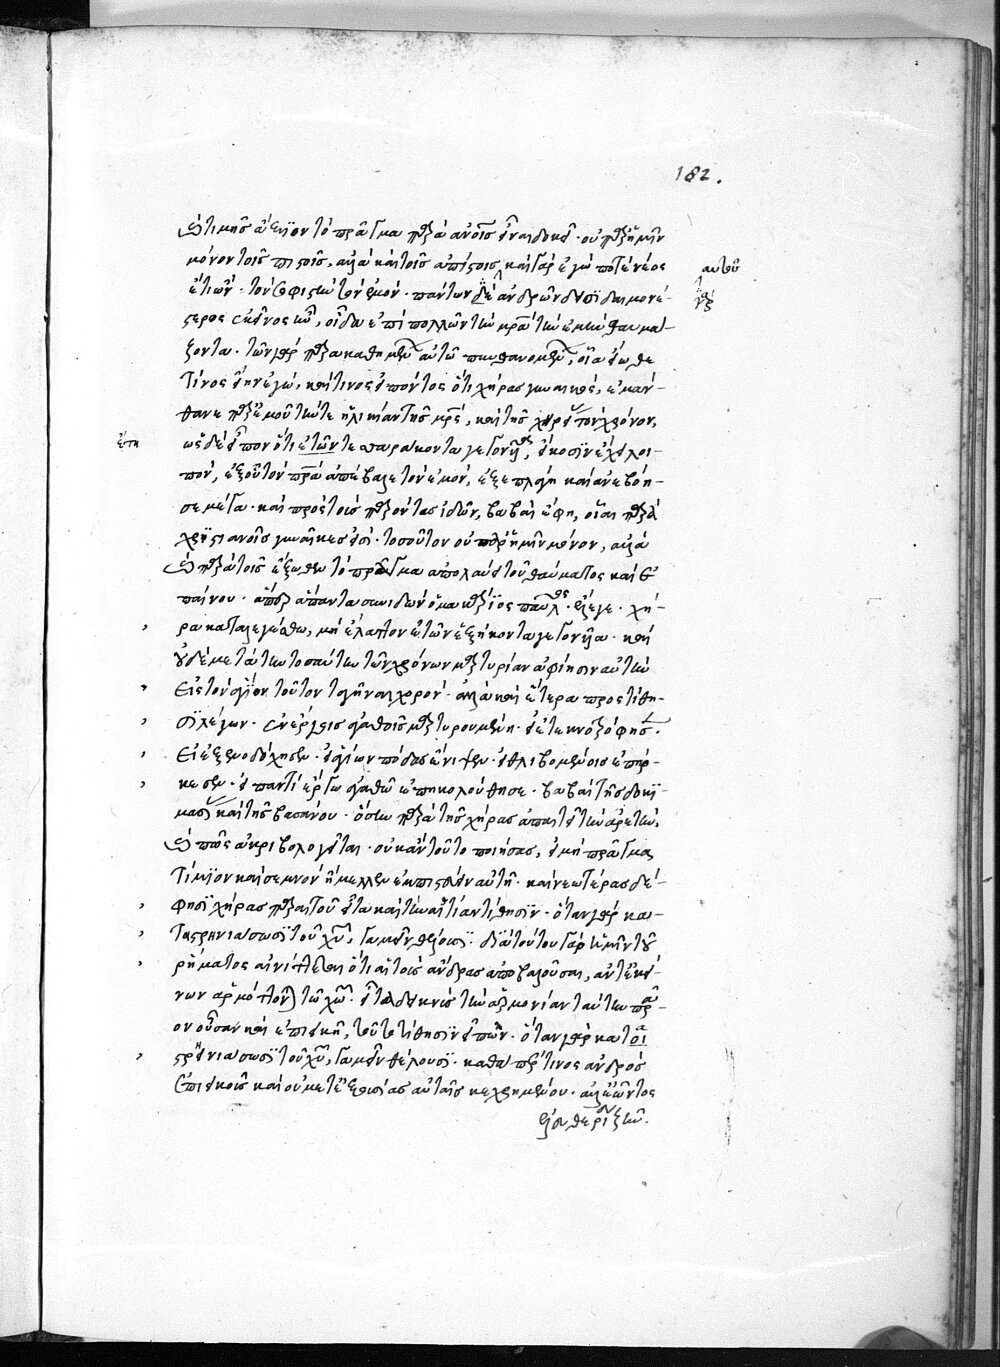 182.
καὶ τιμῆς ἄξιον τὸ πρᾶγμα παρὰ ἀνοις εἶναι δοκεῖ · οὐ παρ' ἡμῖν
μόνον τοῖς πιστοῖς, ἀλλὰ καὶ τοῖς ἀπίστοις καὶ γὰρ ἐγώ ποτε νέος
αυτοῦ
ἔτι ὢν · τὸν σοφιστὴν τὸν ἐμὸν · πάντων δὲ ἀνδρῶν δεισιδαιμονέ-
στερος ἐκεῖνος ἦν, οἶδα ἐπὶ πολλῶν τὴν μρα τὴν ἐμὴν θαυμά-
ζοντα · τῶν γὰρ παρακαθημένων αὐτῶ πυνθανόμενος, οἷα εἴωθε
τίνος εἴην ἐγώ, καί τινος εἰπόντος ὅτι χήρας γυναικός, ἐμάν-
θανε παρ' ἐμοῦ τήν τε ἡλικίαν τῆς μρς, καὶ τῆς χηρείας τὸν χρόνον,
ἔτη
ὡς δὲ εἶπον ὅτι ἐτῶν τεσσαράκοντα γεγονυῖα, εἴκοσιν ἔχει λοι-
πόν, ἐξ οὗ τὸν πρα ἀπέβαλε τὸν ἐμόν, ἐξεπλάγη καὶ ἀνεβόη-
σε μέγα · καὶ πρὸς τοὺς παρόντας ἰδών, βαβαὶ ἔφη, οἷαι παρὰ
χριστιανοῖς γυναῖκες εἰσί · τοσοῦτον οὐ παρ' ἡμῖν μόνον, ἀλλὰ
καὶ παρὰ τοῖς ἔξωθεν τὸ πρᾶγμα ἀπολαύει τοῦ θαύματος καὶ ἐ
παίνου · ἅπερ ἅπαντα συνιδὼν ὁ μακάριος παῦλος · ἔλεγε · χή-
ρα καταλεγέσθω, μὴ ἔλαττον ἐτῶν ἑξήκοντα γεγονυῖα · καὶ
οὐδὲ μετὰ τὴν τοσαύτην τῶν χρόνων μαρτυρίαν ἀφίησιν αὐτὴν
εἰς τὸν ἅγιον τοῦτον τελῆναι χορόν · ἀλλὰ καὶ ἕτερα προστίθη-
σι λέγων · ἐν ἔργοις ἀγαθοῖς μαρτυρουμένη · εἰ ἐτεκνοτρόφησε ·
εἰ ἐξενοδόχησεν · εἰ ἁγίων πόδας ἔνιψεν · εἰ θλιβομένοις ἐπήρ-
κεσεν · εἰ παντὶ ἔργω ἀγαθῶ ἐπηκολούθησε · βαβαὶ τῆς δοκι-
μασίας καὶ τῆς βασάνου · ὅσην παρὰ τῆς χήρας ἀπαιτεῖ τὴν ἀρετὴν,
καὶ πῶς ἀκριβολογεῖται · οὐκ ἂν τοῦτο ποιήσας, εἰ μὴ πρᾶγμα
τίμιον καὶ σεμνὸν ἤμελλεν ἐμπιστεύειν αὐτῆ · καὶ νεωτέρας δέ
φησι χήρας παραιτοῦ εἶτα καὶ τὴν αἰτίαν τίθησιν · ὅταν γὰρ κα-
ταστρηνιάσωσι τοῦ χυ, γαμεῖν θέλουσι · διὰ τούτου γὰρ ἡμῖν τοῦ
ῥήματος αἰνίττεται ὅτι αἱ τοὺς ἄνδρας ἀποβαλοῦσαι, ἀντ' ἐκεί-
νων ἁρμόττονται τῶ χω · εἶτα δεικνὺς τὴν ἁρμονίαν ταύτην πρᾶ-
ον οὖσαν καὶ ἐπιεικῆ, τοῦτο τίθησιν εἰπὼν · ὅταν γὰρ κατα
στρηνιάσωσι τοῦ χυ, γαμεῖν θέλουσι · καθάπερ τινος ἀνδρὸς
ἐπιεικοῦς καὶ οὐ μετ' ἐξουσίας αὐταῖς κεχρημένου · ἀλλ' ἐῶντος
ἐλευθερίαν ζῆν.